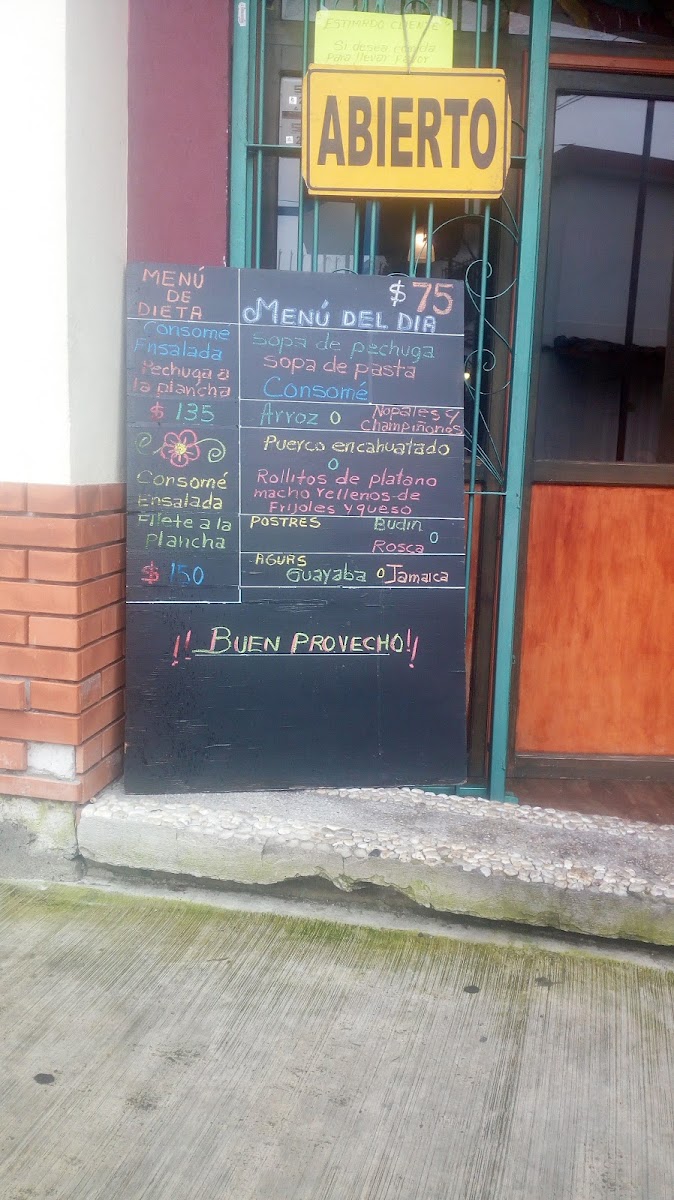 ESTIMADO CLIENTE
Si desea comida
para llevar favor
ABIERTO
MENÚ
DE
DIETA
Consome
Ensalada
Pechuga a
la plancha
$ 135
Consomé
Ensalada
Filete a la
plancha
$ 150
$ 75
MENÚ DEL DIA
Sopa de pechuga
Sopa de pasta
Consomé
Arroz o Nopales y
Champiñones
Puerco encahuatado
o
Rollitos de platano
macho rellenos de
Frijoles y queso
POSTRES Budin
o
Rosca
AGUAS
Guayaba o Jamaica
!! BUEN PROVECHO!!